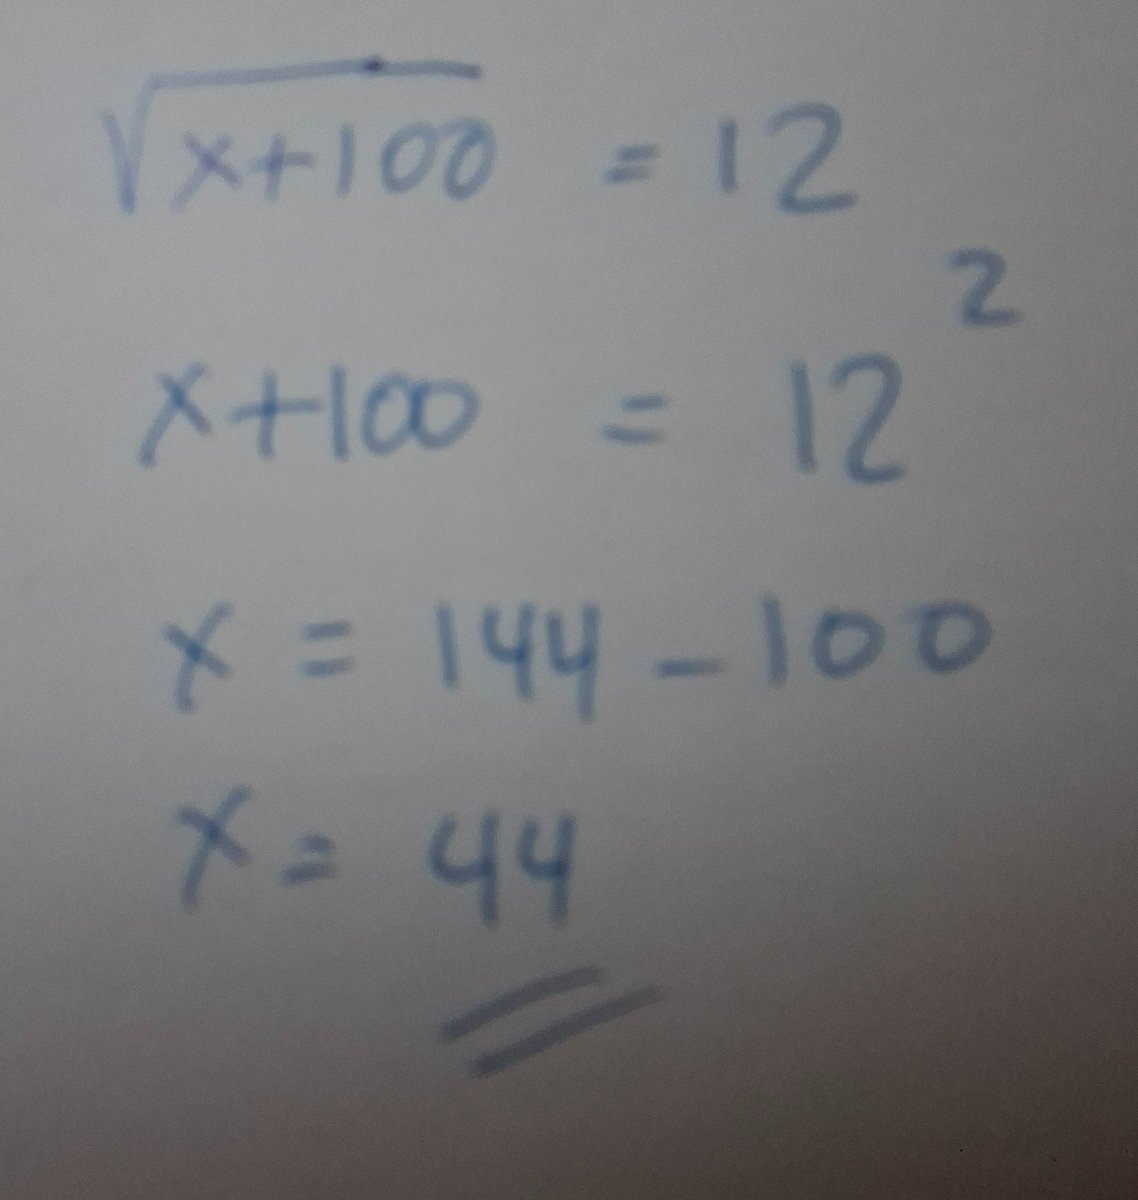 √x+100 = 12
x+100 = 12²
x = 144 - 100
x = 44